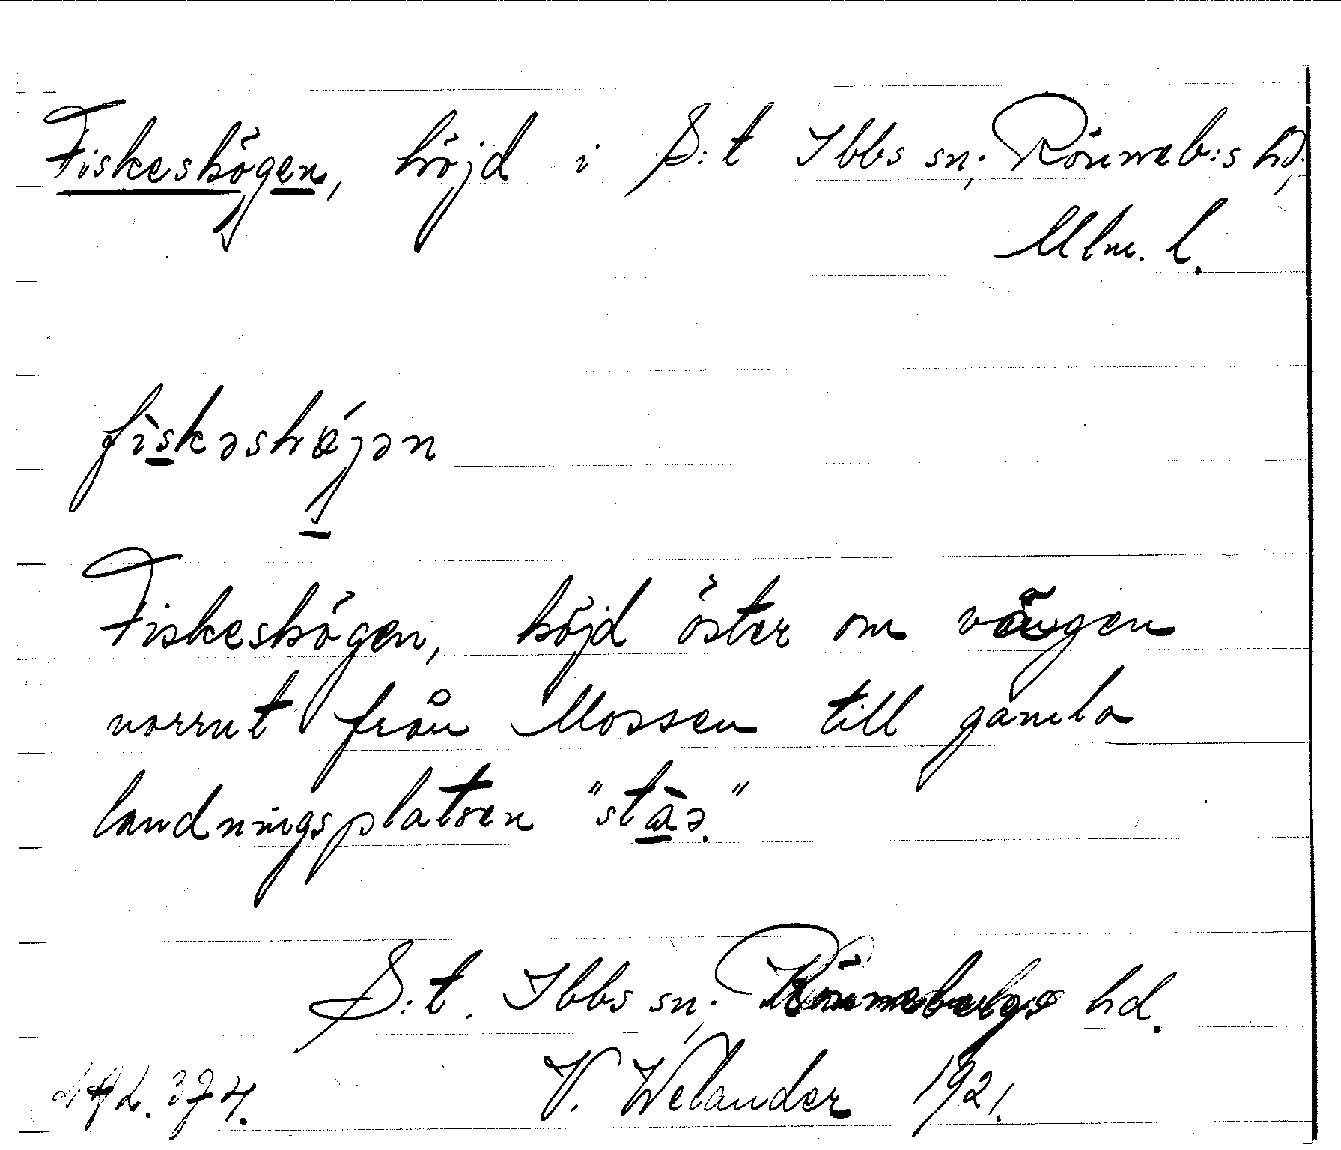 Fiskeshögen, höjd i S:t Ibbs sn, Rönneb:s hd,
Mlm. l.
fìskəshǿjən
Fiskeshögen, höjd öster om vängen
norrut från Mossen till gamla
landningsplatsen "stàə."
S:t. Ibbs sn, Rönnebergs hd.
V. Welander 1921.